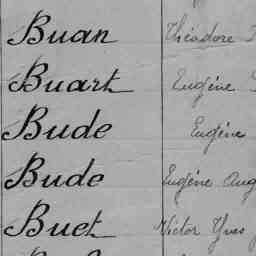 Buan Théodore
Buart Eugène
Bude Eugène
Bude Eugène Aug
Buet Victor Yves